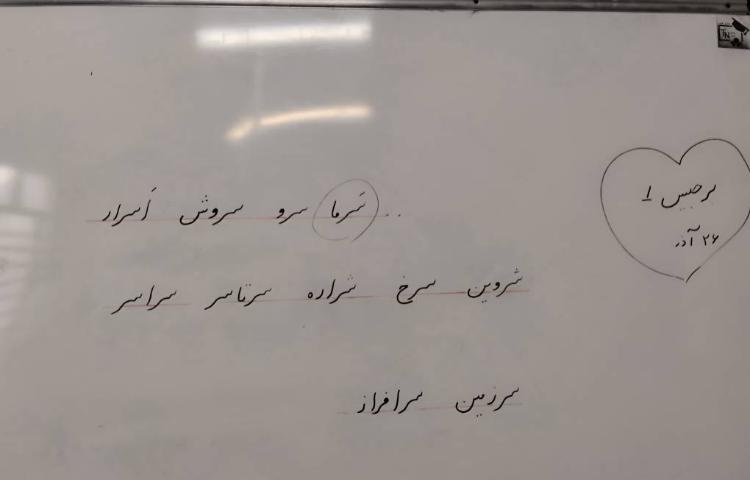 سَرما سرو سروش اَسرار
شروین سرخ شراره سرتاسر سراسر
سرزمین سرافراز
نرجس ۱
۲۶ آذر